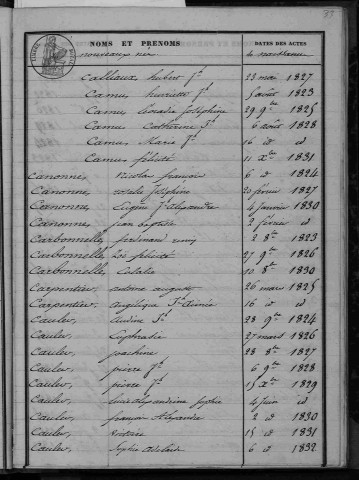 NOMS ET PRENOMS
DATES DES ACTES
nouveaux nés
de naissance
Callaux, hubert Jh 23 mai 1827
Camus, henriette Jh 5 août 1823
Camus, Josephine 29 9bre 1825
Camus, Catherine Jh 6 août 1828
Camus, Marie Jh 16 d d
Camus félicité 11 Xbre 1831
Canonne, Nicolas françois 6 d 1824
Canonne, rosalie Joséphine 20 février 1827
Canonne, Eugène Jh Alexandre 4 janvier 1830
Canonne, jean baptiste 2 février d
Carbonnelle, ferdinand remy 2 8bre 1823
Carbonnelle, félicité 27 9bre 1826
Carbonnelle, 10 8bre 1830
Carpentier, antoine auguste 26 mars 1825
Carpentier, angélique Jh aimée 16 d d
Cauler, Jh 28 9bre 1824
Cauler, Euphrasie 27 mars 1826
Cauler, joachim 28 8bre 1827
Cauler, pierre Jh 6 9bre 1828
Cauler, pierre Jh 15 Xbre 1829
Cauler, alexandrine sophie 4 juin d
Cauler, françois Alexandre 2 d 1830
Cauler, 15 d 1831
Cauler, Sophie adelaïde 6 d 1832